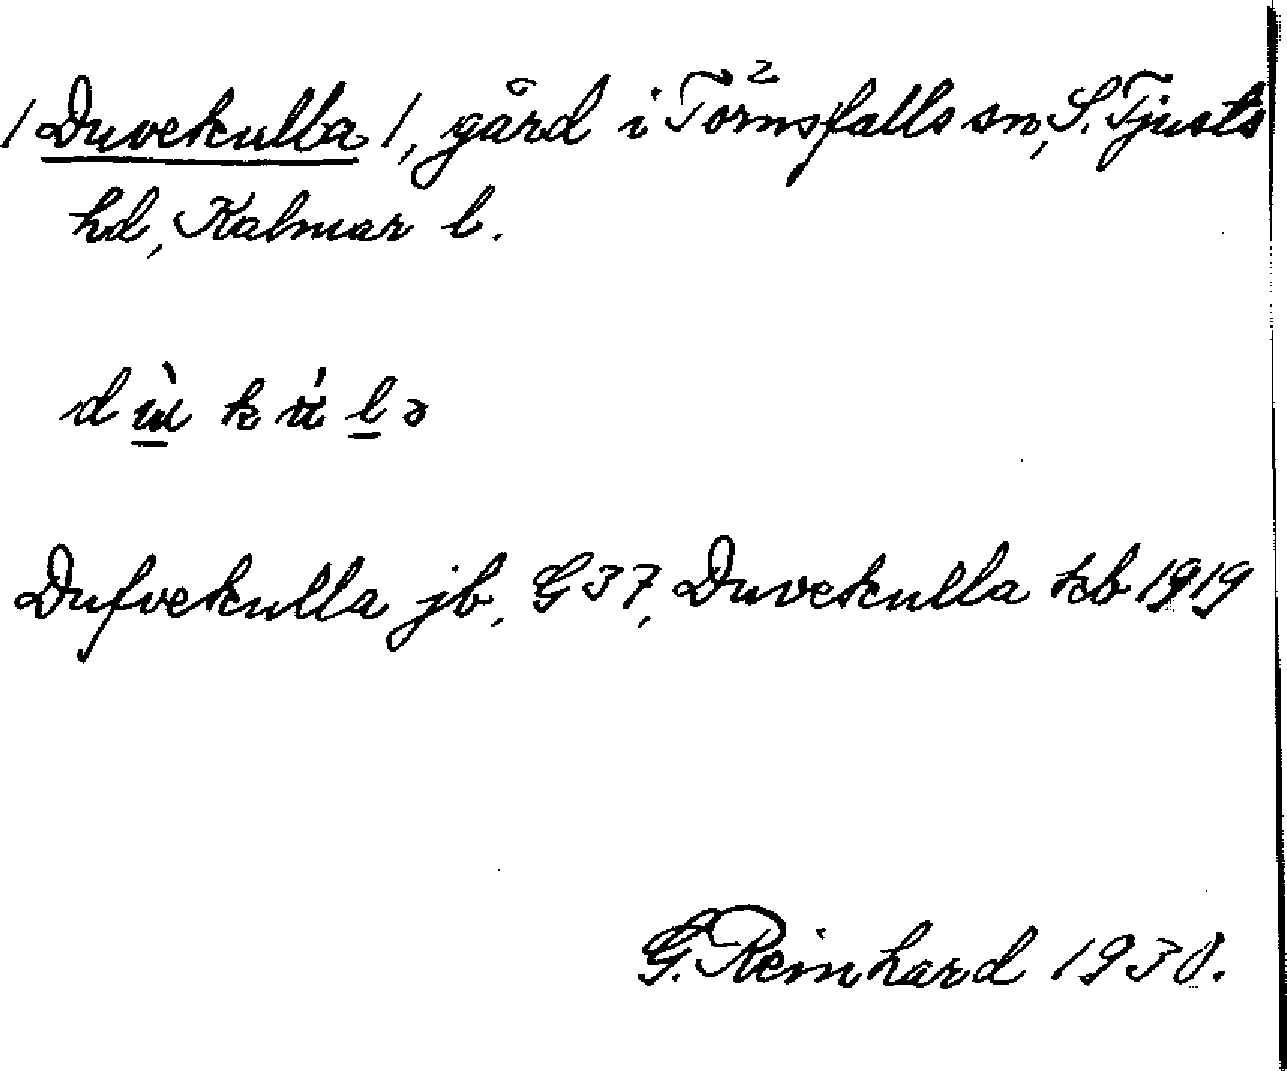 /Duvekulla/, gård i Törnsfalls sn, S. Tjusts
hd, Kalmar l.
Dufvekulla jb. G 37, Duvekulla kb 1919
G. Reinhard 1930.